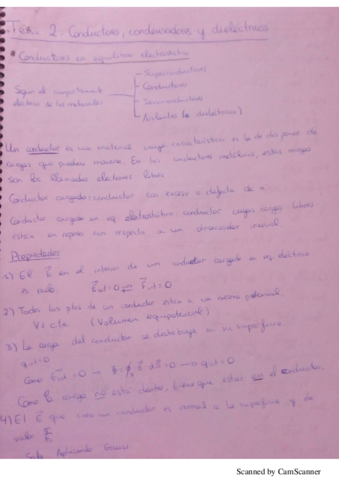 Tema 2. Conductores, condensadores y dieléctricos
* Conductores en equilibrio electrostático
Según el comportamiento
eléctrico de los materiales
- Superconductores
- Conductores
- Semiconductores
- Aislantes (o dieléctricos)
Un conductor es una material cuya característica es la de disponer de
cargas que pueden moverse. En los conductores metálicos, estas cargas
son los llamados electrones libres
Conductor cargado: conductor con exceso o defecto de e-
Conductor cargado en eq electrostático: conductor cuyas cargas libres
están en reposo con respecto a un observador inercial
Propiedades
1) El E en el interior de un conductor cargado en eq electrost
es nulo. E int = 0 F int = 0
2) Todos los ptos de un conductor están a un mismo potencial.
V = cte (Volumen equipotencial)
3) La carga del conductor se distribuye en su superficie
q int = 0
Como E int = 0 → E · dS = 0 → q int = 0
Como la carga no está dentro, tiene que estar en el conductor.
4) El E que crea un conductor es normal a la superficie y de
valor
Sol. Aplicando Gauss
Scanned by CamScanner